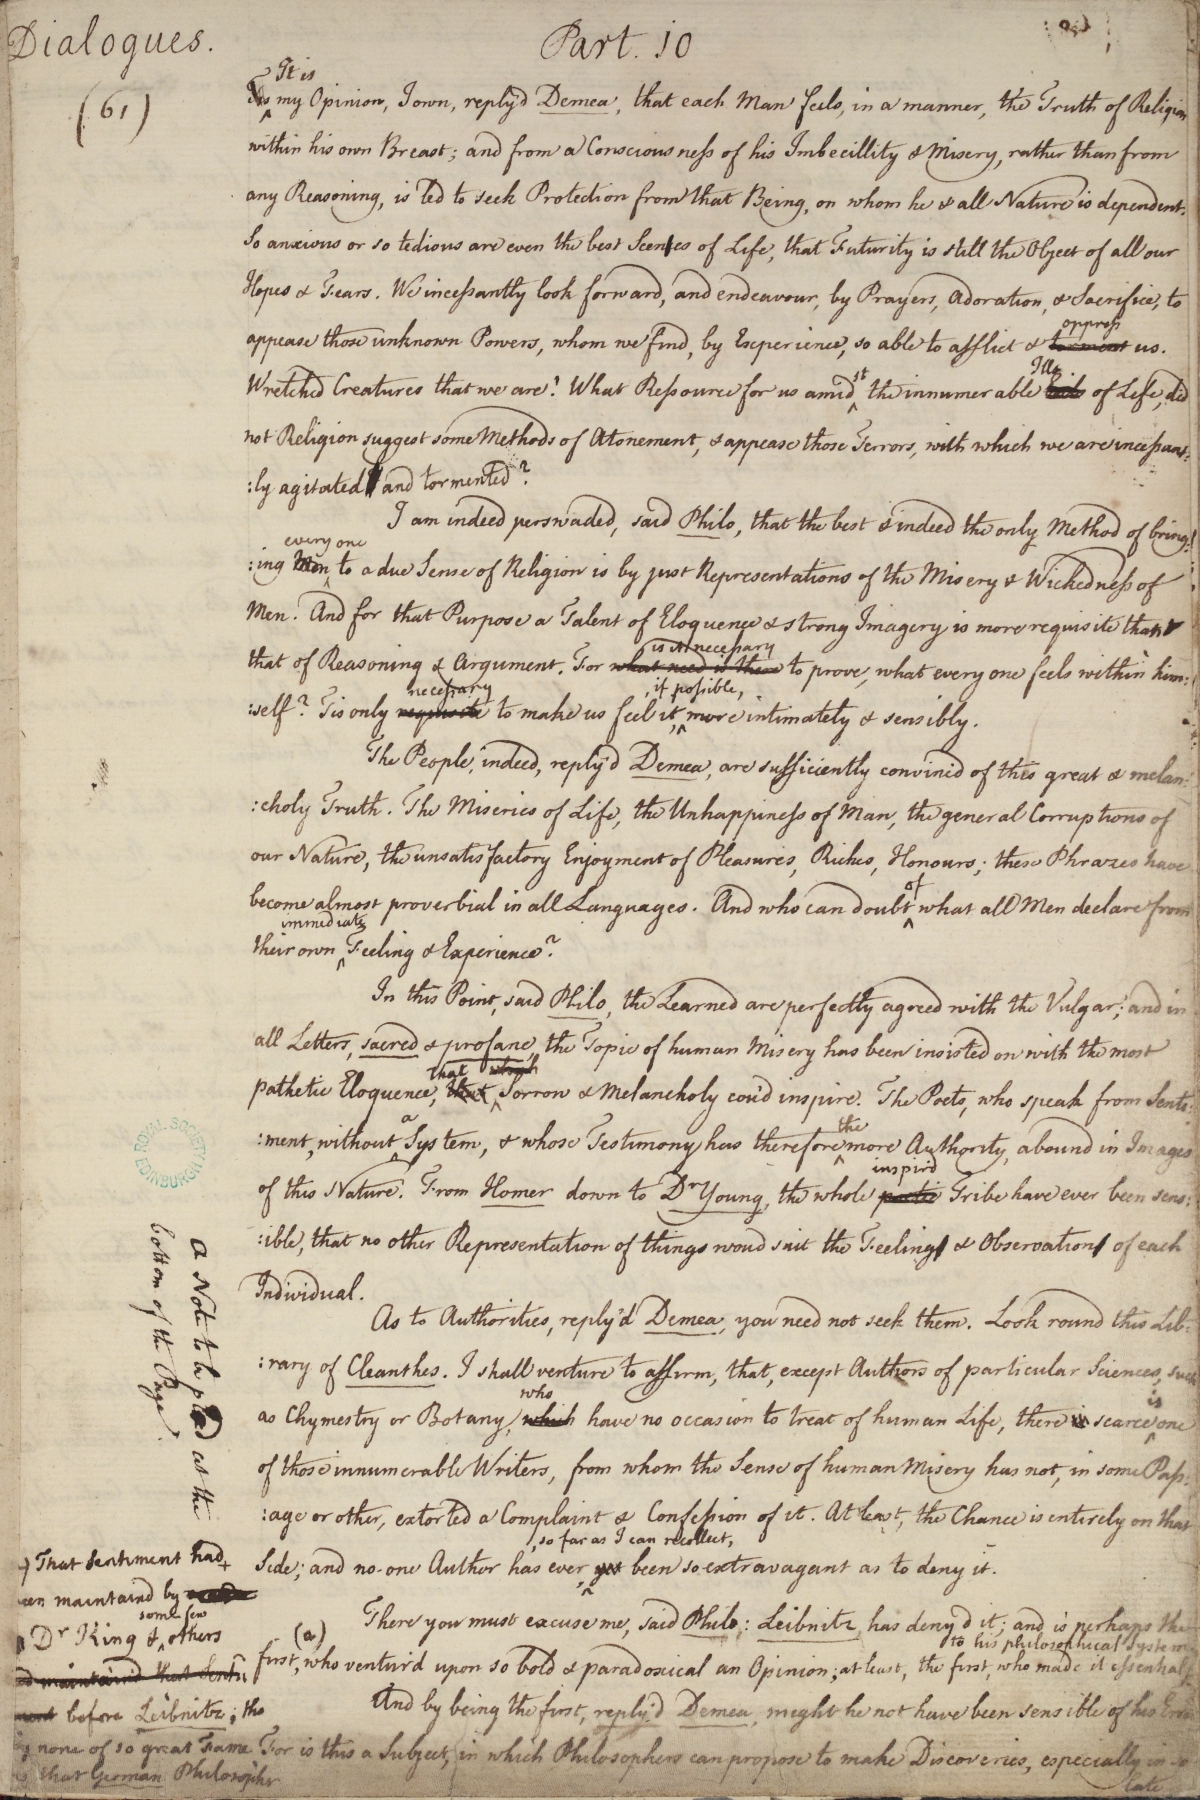 Dialogues.
Part. 10
(61)
It is
Tis my Opinion, I own, reply'd Demea, that each Man feels, in a manner, the Truth of Religion
within his own Breast; and from a Consciousness of his Imbecillity & Misery, rather than from
any Reasoning, is led to seek Protection from that Being, on whom he & all Nature is dependent.
So anxious or so tedious are even the best Scenes of Life, that Futurity is still the Object of all our
Hopes & Fears. We incessantly look forward, and endeavour, by Prayers, Adoration, & Sacrifice, to
oppress
appease those unknown Powers, whom we find, by Experience, so able to afflict & torment us.
st Ills
Wretched Creatures that we are! What Ressource for us amid the innumerable Evils of Life, did
not Religion suggest some Methods of Atonement, & appease those Terrors, with which we are incessant:
:ly agitated and tormented?
I am indeed perswaded, said Philo, that the best & indeed the only Method of bring:
every one
:ing Men to a due Sense of Religion is by just Representations of the Misery & Wickedness of
Men. And for that Purpose a Talent of Eloquence & strong Imagery is more requisite than
is it necessary
that of Reasoning & Argument. For what need is there to prove, what every one feels within him:
necessary , if possible,
:self? Tis only requisite to make us feel it, more intimately & sensibly.
The People, indeed, reply'd Demea, are sufficiently convinc'd of this great & melan:
:choly Truth. The Miseries of Life, the Unhappiness of Man, the general Corruptions of
our Nature, the unsatisfactory Enjoyment of Pleasures, Riches, Honours; these Phrazes have
of
become almost proverbial in all Languages. And who can doubt what all Men declare from
immediate
their own Feeling & Experience?
In this Point, said Philo, the Learned are perfectly agreed with the Vulgar; and in
all Letters, sacred & profane, the Topic of human Misery has been insisted on with the most
that which
pathetic Eloquence, that Sorrow & Melancholy cou'd inspire. The Poets, who speak from Senti:
a the
:ment, without System, & whose Testimony has therefore more Authority, abound in Images
inspir'd
of this Nature. From Homer down to Dr Young, the whole poetic Tribe have ever been sens:
:ible, that no other Representation of things woud suit the Feeling & Observation of each
Individual.
As to Authorities, reply'd Demea, you need not seek them. Look round this Lib:
:rary of Cleanthes. I shall venture to affirm, that, except Authors of particular Sciences, such
who is
as Chymestry or Botany, which have no occasion to treat of human Life, there is scarce one
of those innumerable Writers, from whom the Sense of human Misery has not, in some Pass:
:age or other, extorted a Complaint & Confession of it. At least, the Chance is entirely on that
, so far as I can recollect,
Side; and no one Author has ever yet been so extravagant as to deny it.
There you must excuse me, said Philo: Leibnitz has deny'd it; and is perhaps the
(a) to his philosophical System
first, who ventur'd upon so bold & paradoxical an Opinion; at least, the first, who made it essential
And by being the first, reply'd Demea, might he not have been sensible of his Error
For is this a Subject, in which Philosophers can propose to make Discoveries, especially in so
late
a Note to be plac'd at the
bottom of the Page
That Sentiment had
been maintaind by
some few
Dr King & others
maintaind that Senti:
ment before Leibnitz; tho
none of so great Fame
that German Philosopher
ROYAL SOCIETY
EDINBURGH